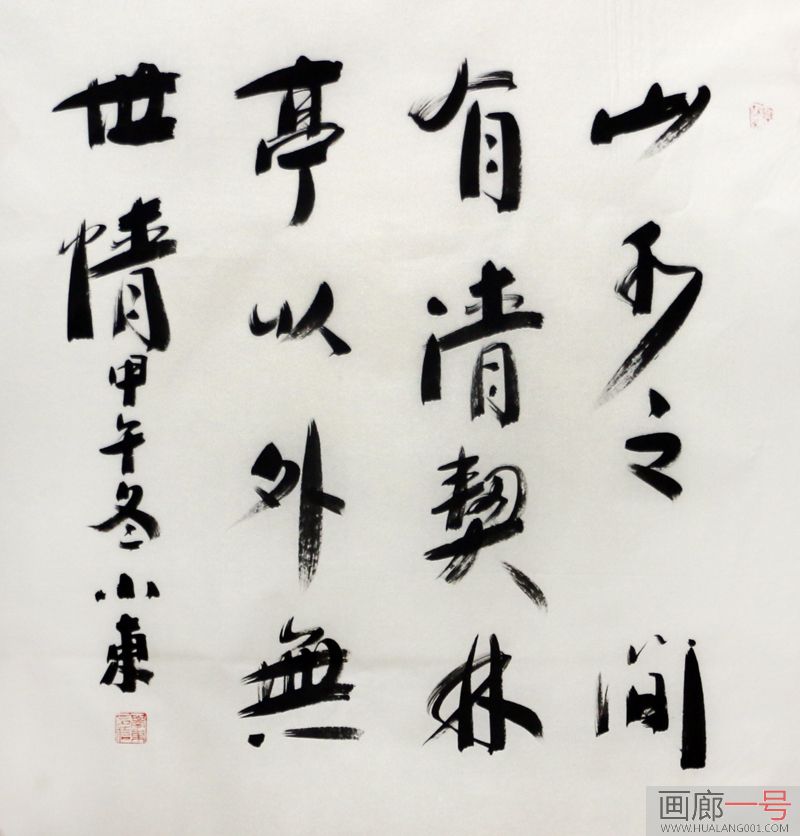 山水之間
有清契林
亭以外無
世情甲午冬小東
画廊一号
WWW.HUALANG001.COM